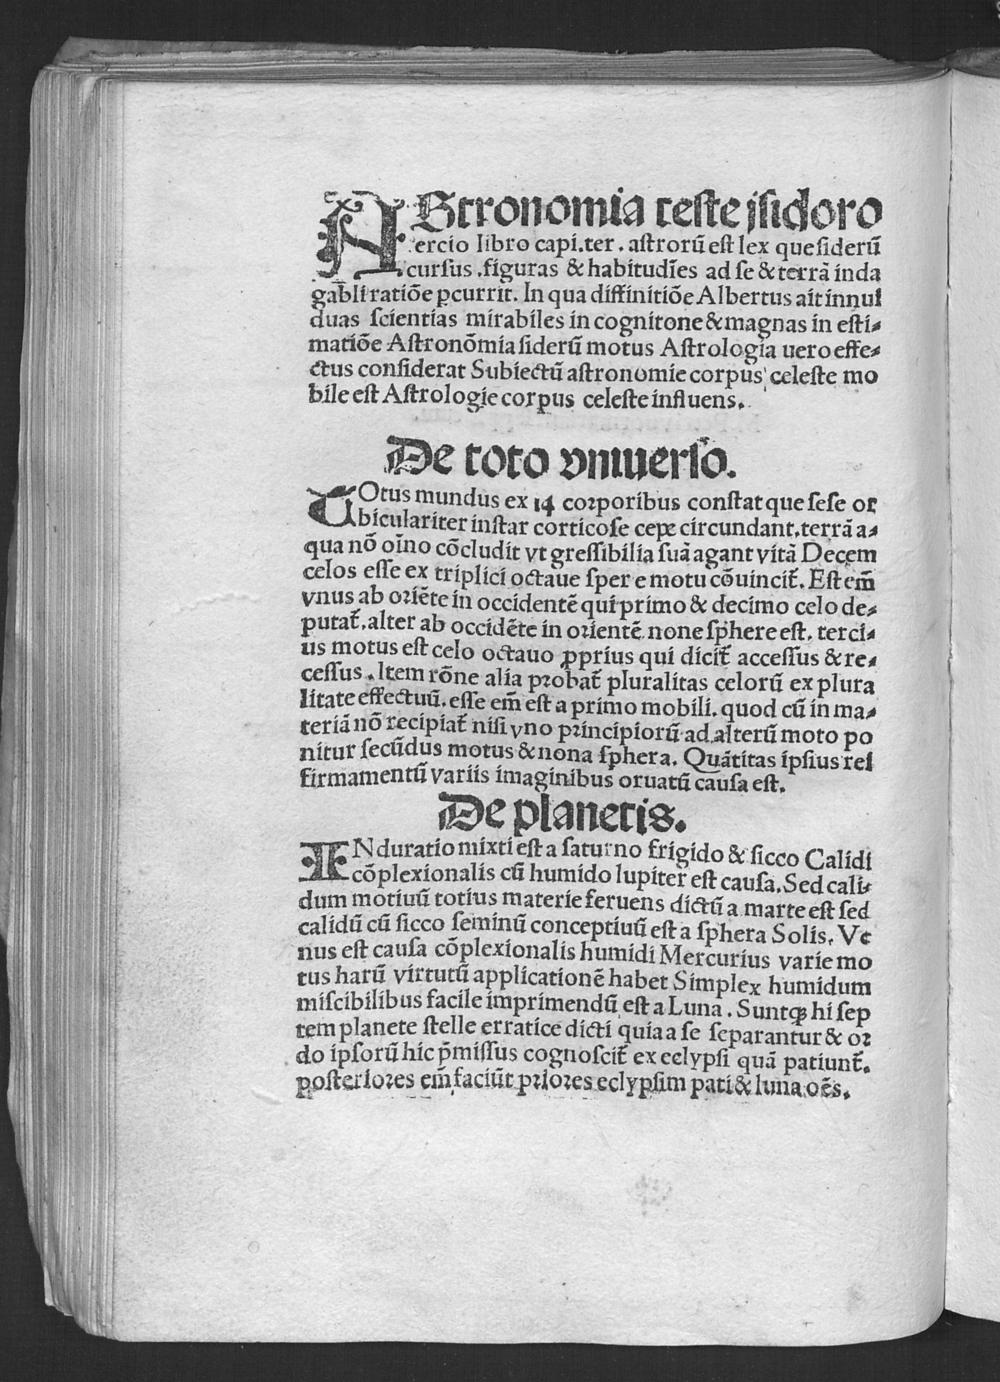 AStronomia teste jsidoro
tercio libro capi.ter. astrorū est lex que siderū
cursus .figuras & habitudīes ad se & terrā inda
gabli ratiōe ꝑcurrit. In qua diffinitiōe Albertus ait innui
duas scientias mirabiles in cognitone & magnas in esti⸗
matiōe Astronōmia siderū motus Astrologia uero effe⸗
ctus considerat Subiectū astronomie corpus celeste mo
bile est Astrologie corpus celeste influens.
De toto vniuerso.
TOtus mundus ex 14 corporibus constat que sese or
biculariter instar corticose cepe circundant.terrā a⸗
qua nō oīno cōcludit vt gressibilia suā agant vitā Decem
celos esse ex triplici octaue sper e motu cōuincit̄. Est em̄
vnus ab oriēte in occidentē qui primo & decimo celo de⸗
putat̄.alter ab occidēte in orientē none sphere est. terci⸗
us motus est celo octauo ꝓprius qui dicit̄ accessus & re⸗
cessus .Item rōne alia probat̄ pluralitas celorū ex plura
litate effectuū.esse em̄ est a primo mobili.quod cū in ma⸗
teriā nō recipiat̄ nisi vno principiorū ad alterū moto po
nitur secūdus motus & nona sphera. Quātitas ipsius rei
firmamentū variis imaginibus oruatū causa est.
De planetis.
INduratio mixti est a saturno frigido & sicco Calidi
cōplexionalis cū humido Iupiter est causa.Sed cali⸗
dum motiuū totius materie feruens dictū a marte est sed
calidū cū sicco seminū conceptiuū est a sphera Solis. Ve
nus est causa cōplexionalis humidi Mercurius varie mo
tus harū virtutū applicationē habet Simplex humidum
miscibilibus facile imprimendū est a Luna. Suntqꝫ hi sep
tem planete stelle erratice dicti quia a se separantur & or
do ipsorū hic p̄missus cognoscit̄ ex eclypsi quā patiunt̄.
posteriores em̄ faciūt priores eclypsim pati & luna oēs.